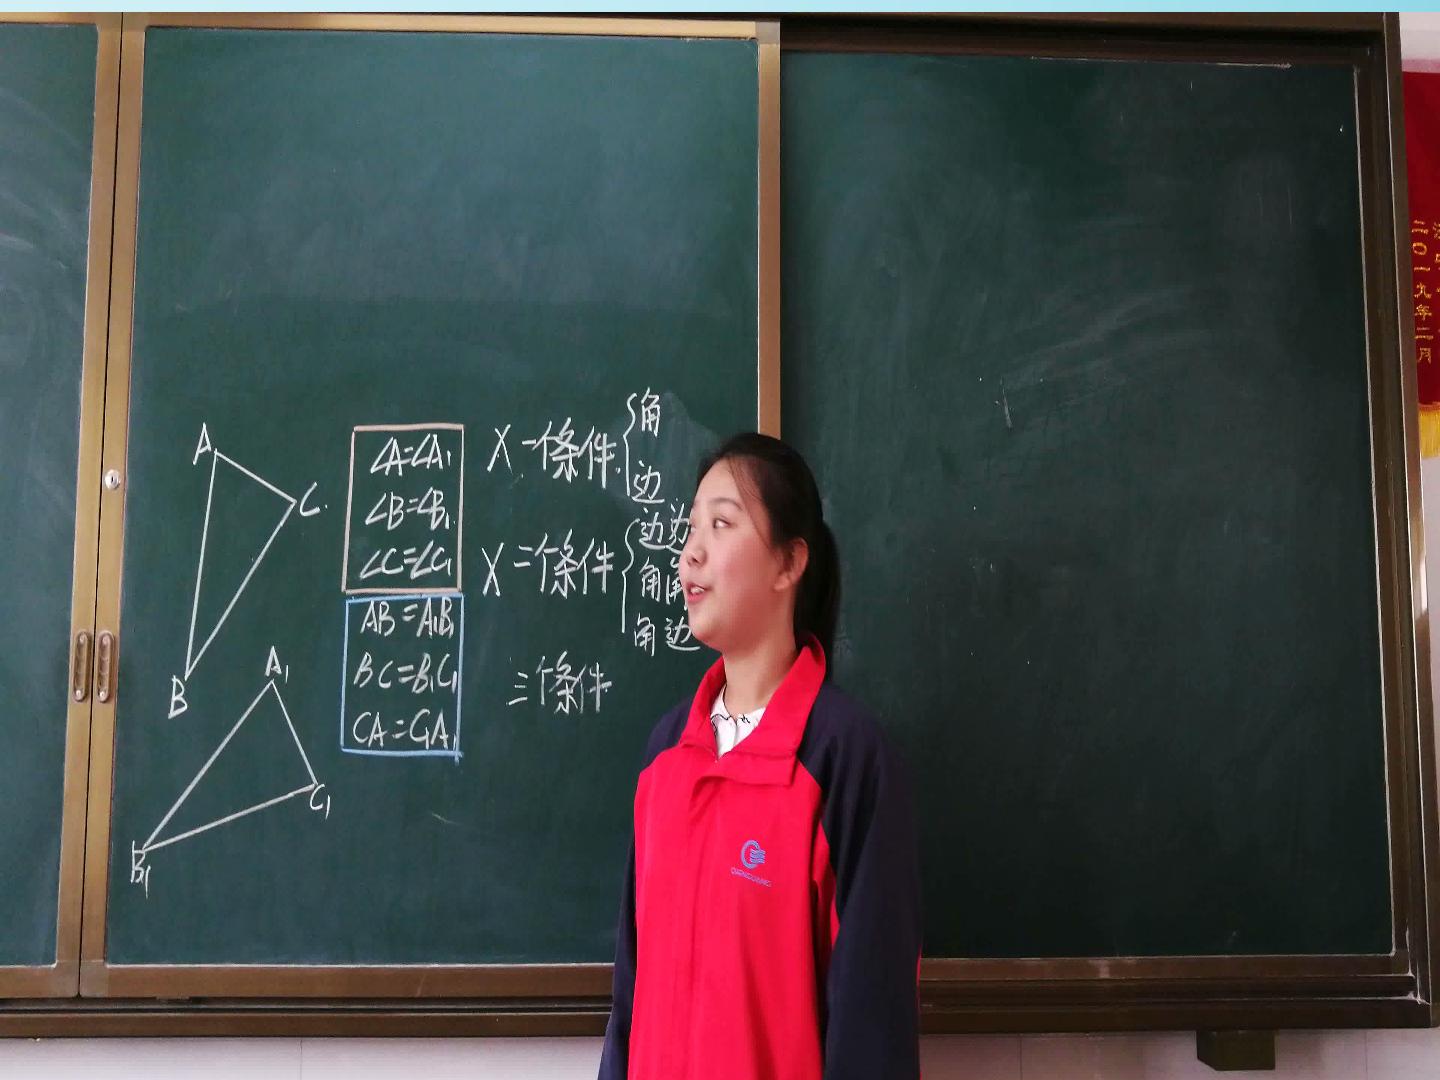 A
C.
B
A₁
C₁
B₁
∠A=∠A₁
∠B=∠B₁
∠C=∠C₁
AB=A₁B₁
BC=B₁C₁
CA=C₁A₁
X 一條件.{角
边
X 二條件{边边
角角
角边
三條件.
二〇一九年二月